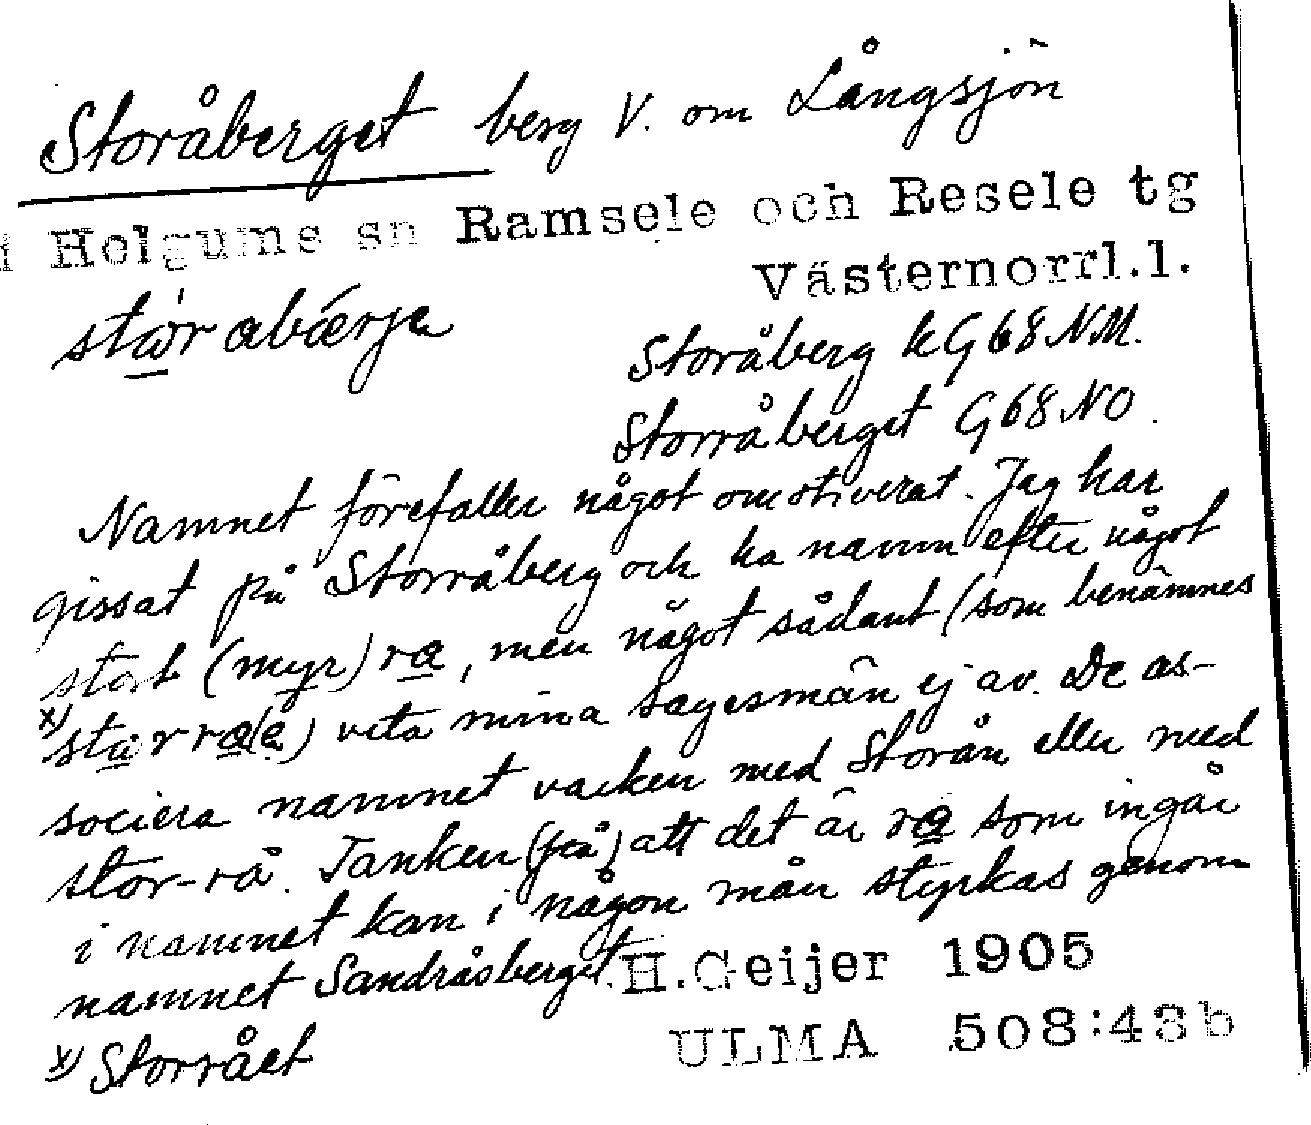 Storåberget berg V. om Långsjön
i Helgums sn Ramsele och Resele tg
Västernorrl.l.
Storåberg kG68NM.
Storråberget G68NO.
Namnet förefaller något omotiverat. Jag har
gissat på Storråberg och ha namn efter något
stort (myr)ra, men något sådant (som benämnes
x) vita mina sagesmän ej av. De as-
sociera namnet varken med Storån eller med
stor-rå. Tanken (på) att det är ra som ingår
i namnet kan i någon mån styrkas genom
namnet Sandråsberget.
H.Geijer 1905
x) Storrået
ULMA 508:43b